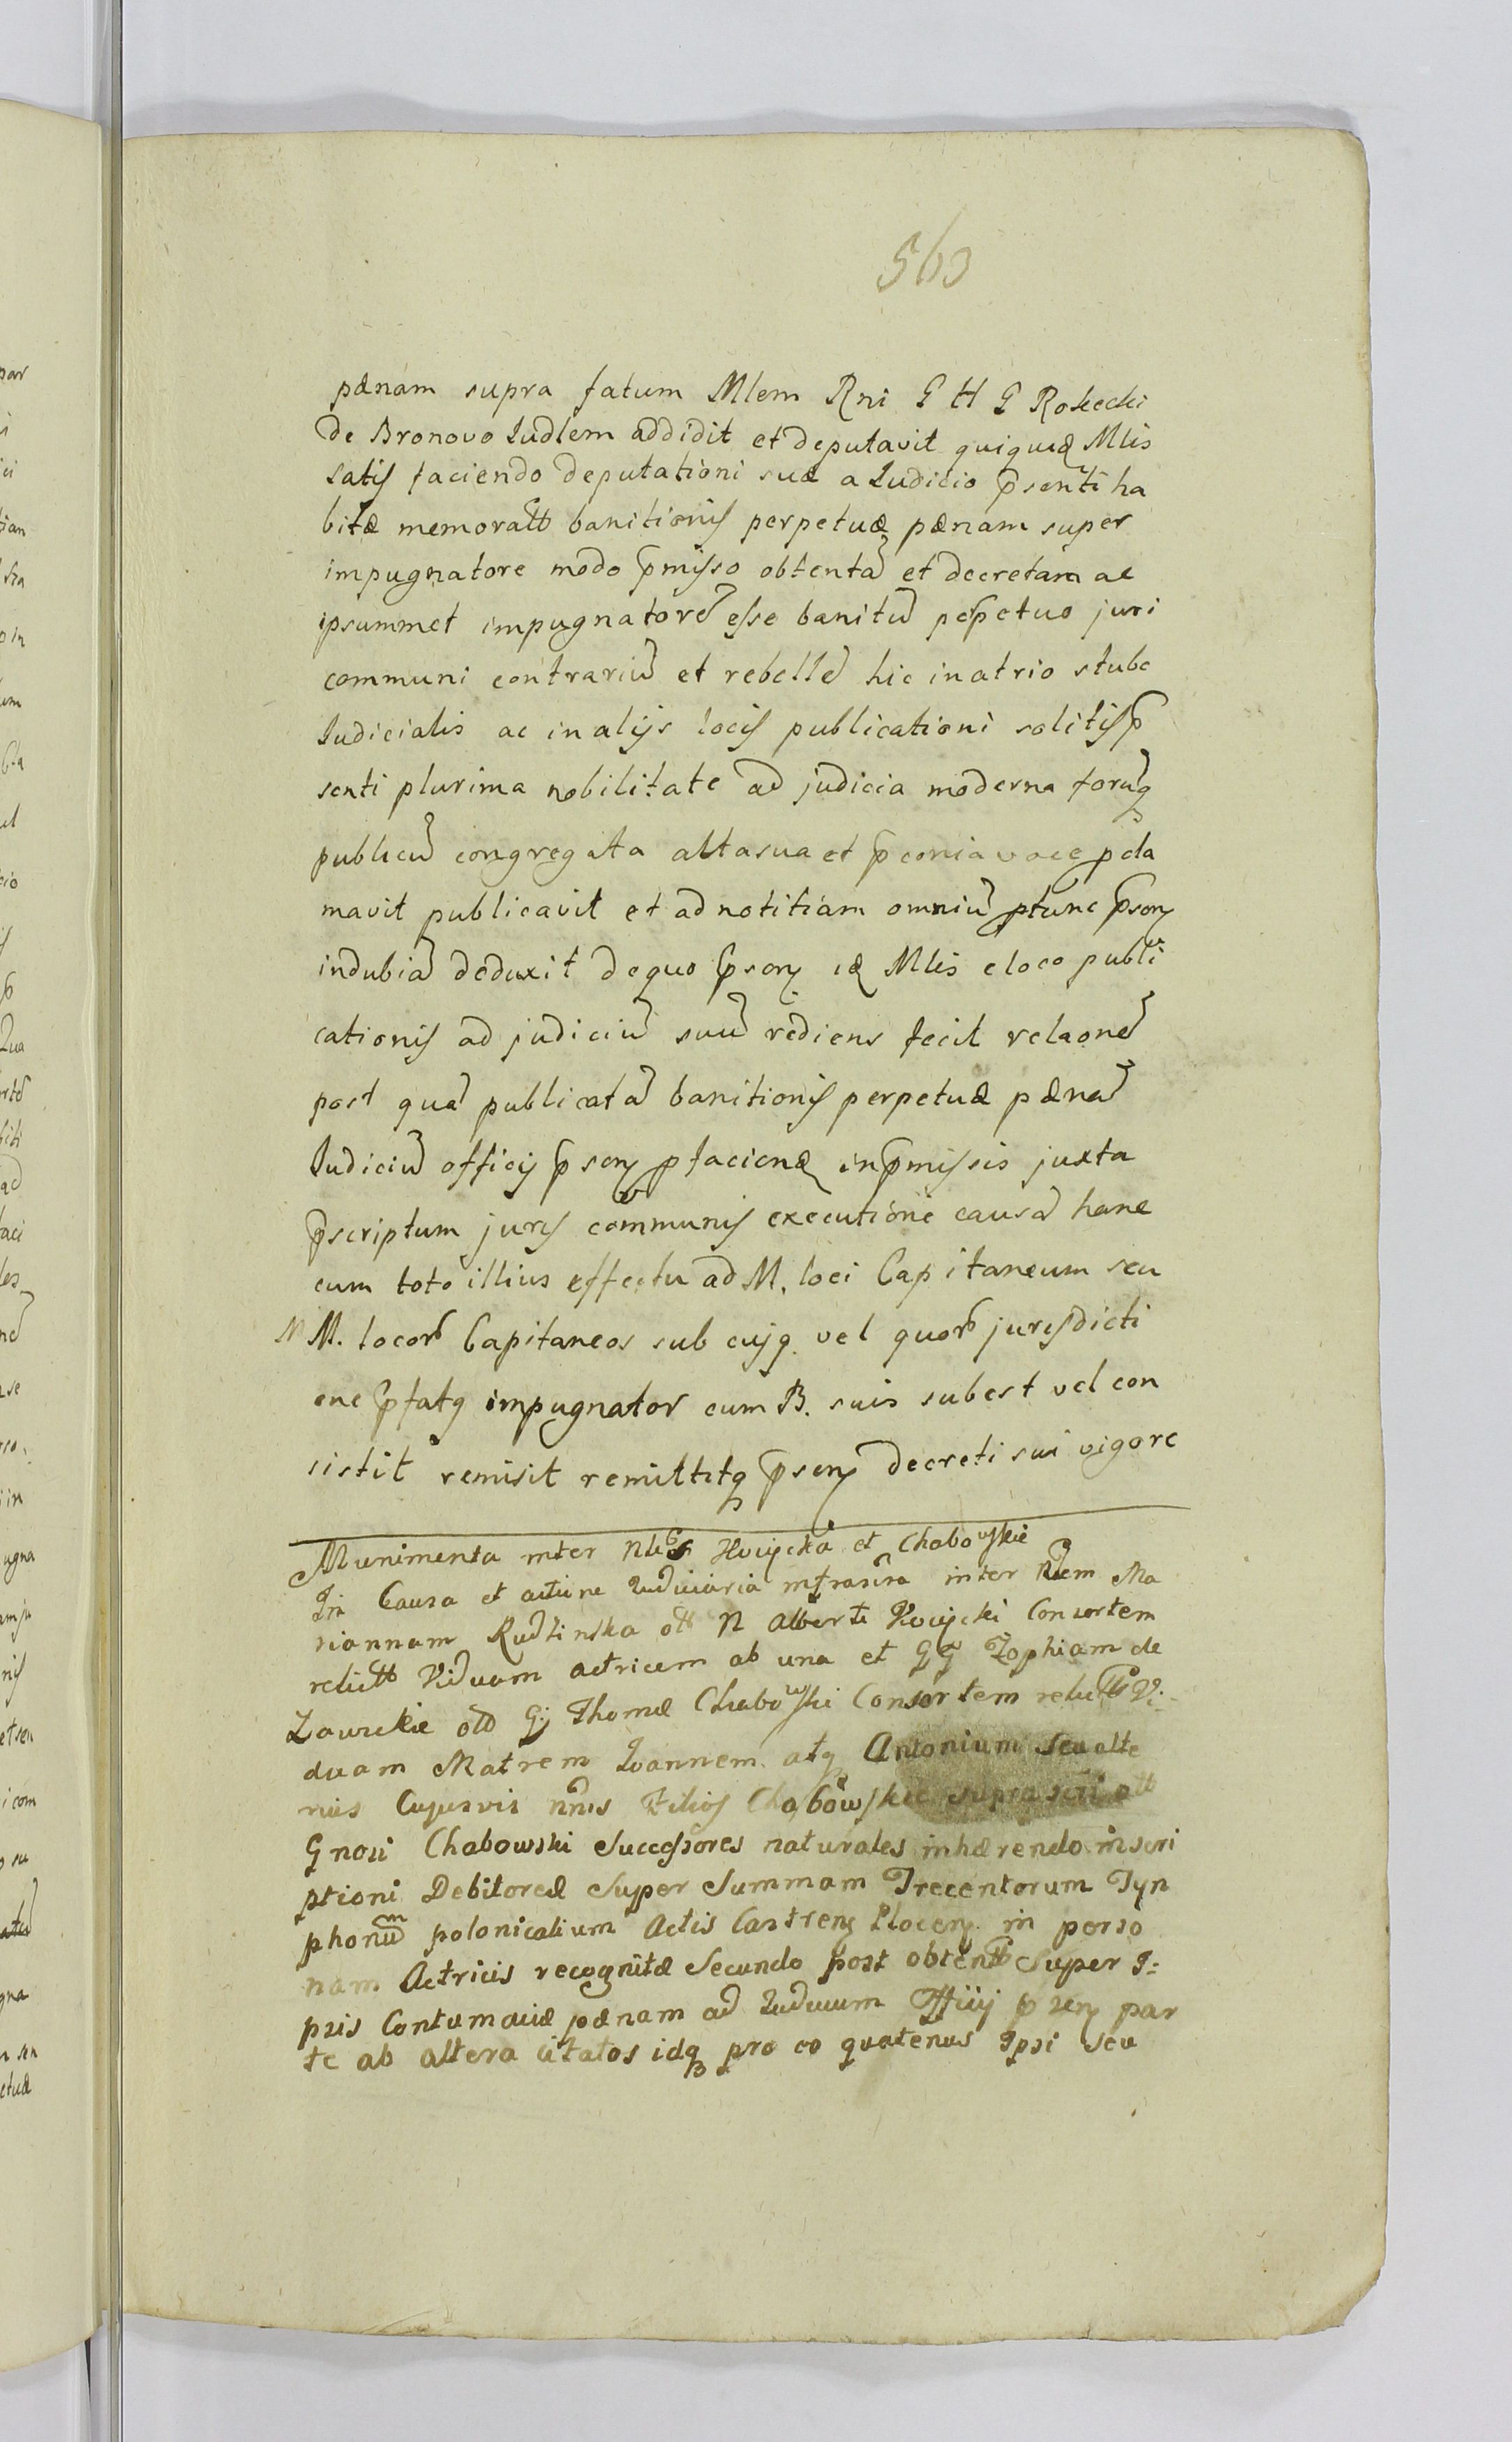 563
pænam supra fatum Mlem Rni G H G Rokecki
de Bronovo Iudlem addidit et deputavit quiquidæ Mlis
satis faciendo deputationi suæ a Iudicio pſenti ha
bitæ memoratt banitionis perpetuæ pænam super
impugnatore modo pmiſso obtentā et decretam ac
ipsummet impugnatorē eſse banitū pepetuo juri
communi contrariū et rebellē hic in atrio stubæ
Iudicialis ac in alijs locis publicationi solitis p
senti plurima nobilitate ad judicia moderna forūq
publicū congregata alta sua et pconia voce pcla
mavit publicavit et ad notitiam omniū ptunc psen
indubiā deduxit de quo psen id Mlis e loco publi
cationis ad judiciū suū rediens fecit relaonē
post quā publicatā banitionis perpetuæ pænā
Iudiciū officij psen pfaciend in pmiſsis juxta
pscriptum juris communis executione causā hanc
cum toto illius effectu ad M. loci Capitaneum seu
M M. locor Capitaneos sub cujq vel quor jurisdicti
one pfatq impugnator cum B. suis subest vel con
sistit remisit remittitq psen decreti sui vigore
Munimenta inter Nles Kocycka et Chabowskie
In Causa et actione Iudiciaria infrascra inter Nlem Ma
riannam Rudzinska olt N Alberti Kocycki Consortem
relictt Viduam actricem ab una et GG Zophiam de
Zawckie olt Gj Thomæ Chabowski Consortem relictt Vi
duam Matrem Ioannem atq Antonium seu alte
rius Cujusvis nnis Filios Chabowskie suprascri olt
Gnosi Chabowski Succeſsores naturales inhærendo inscri
ptioni Debitoreæ Super Summam Trecentorum Tyn
phonum polonicalium Actis Castren Plocen in perso
nam Actricis recognitæ Secundo post obtentt Super I=
psis Contumaciæ pænam ad Iudicium Officij psen par
te ab altera citatos idq pro eo quatenus Ipsi seu